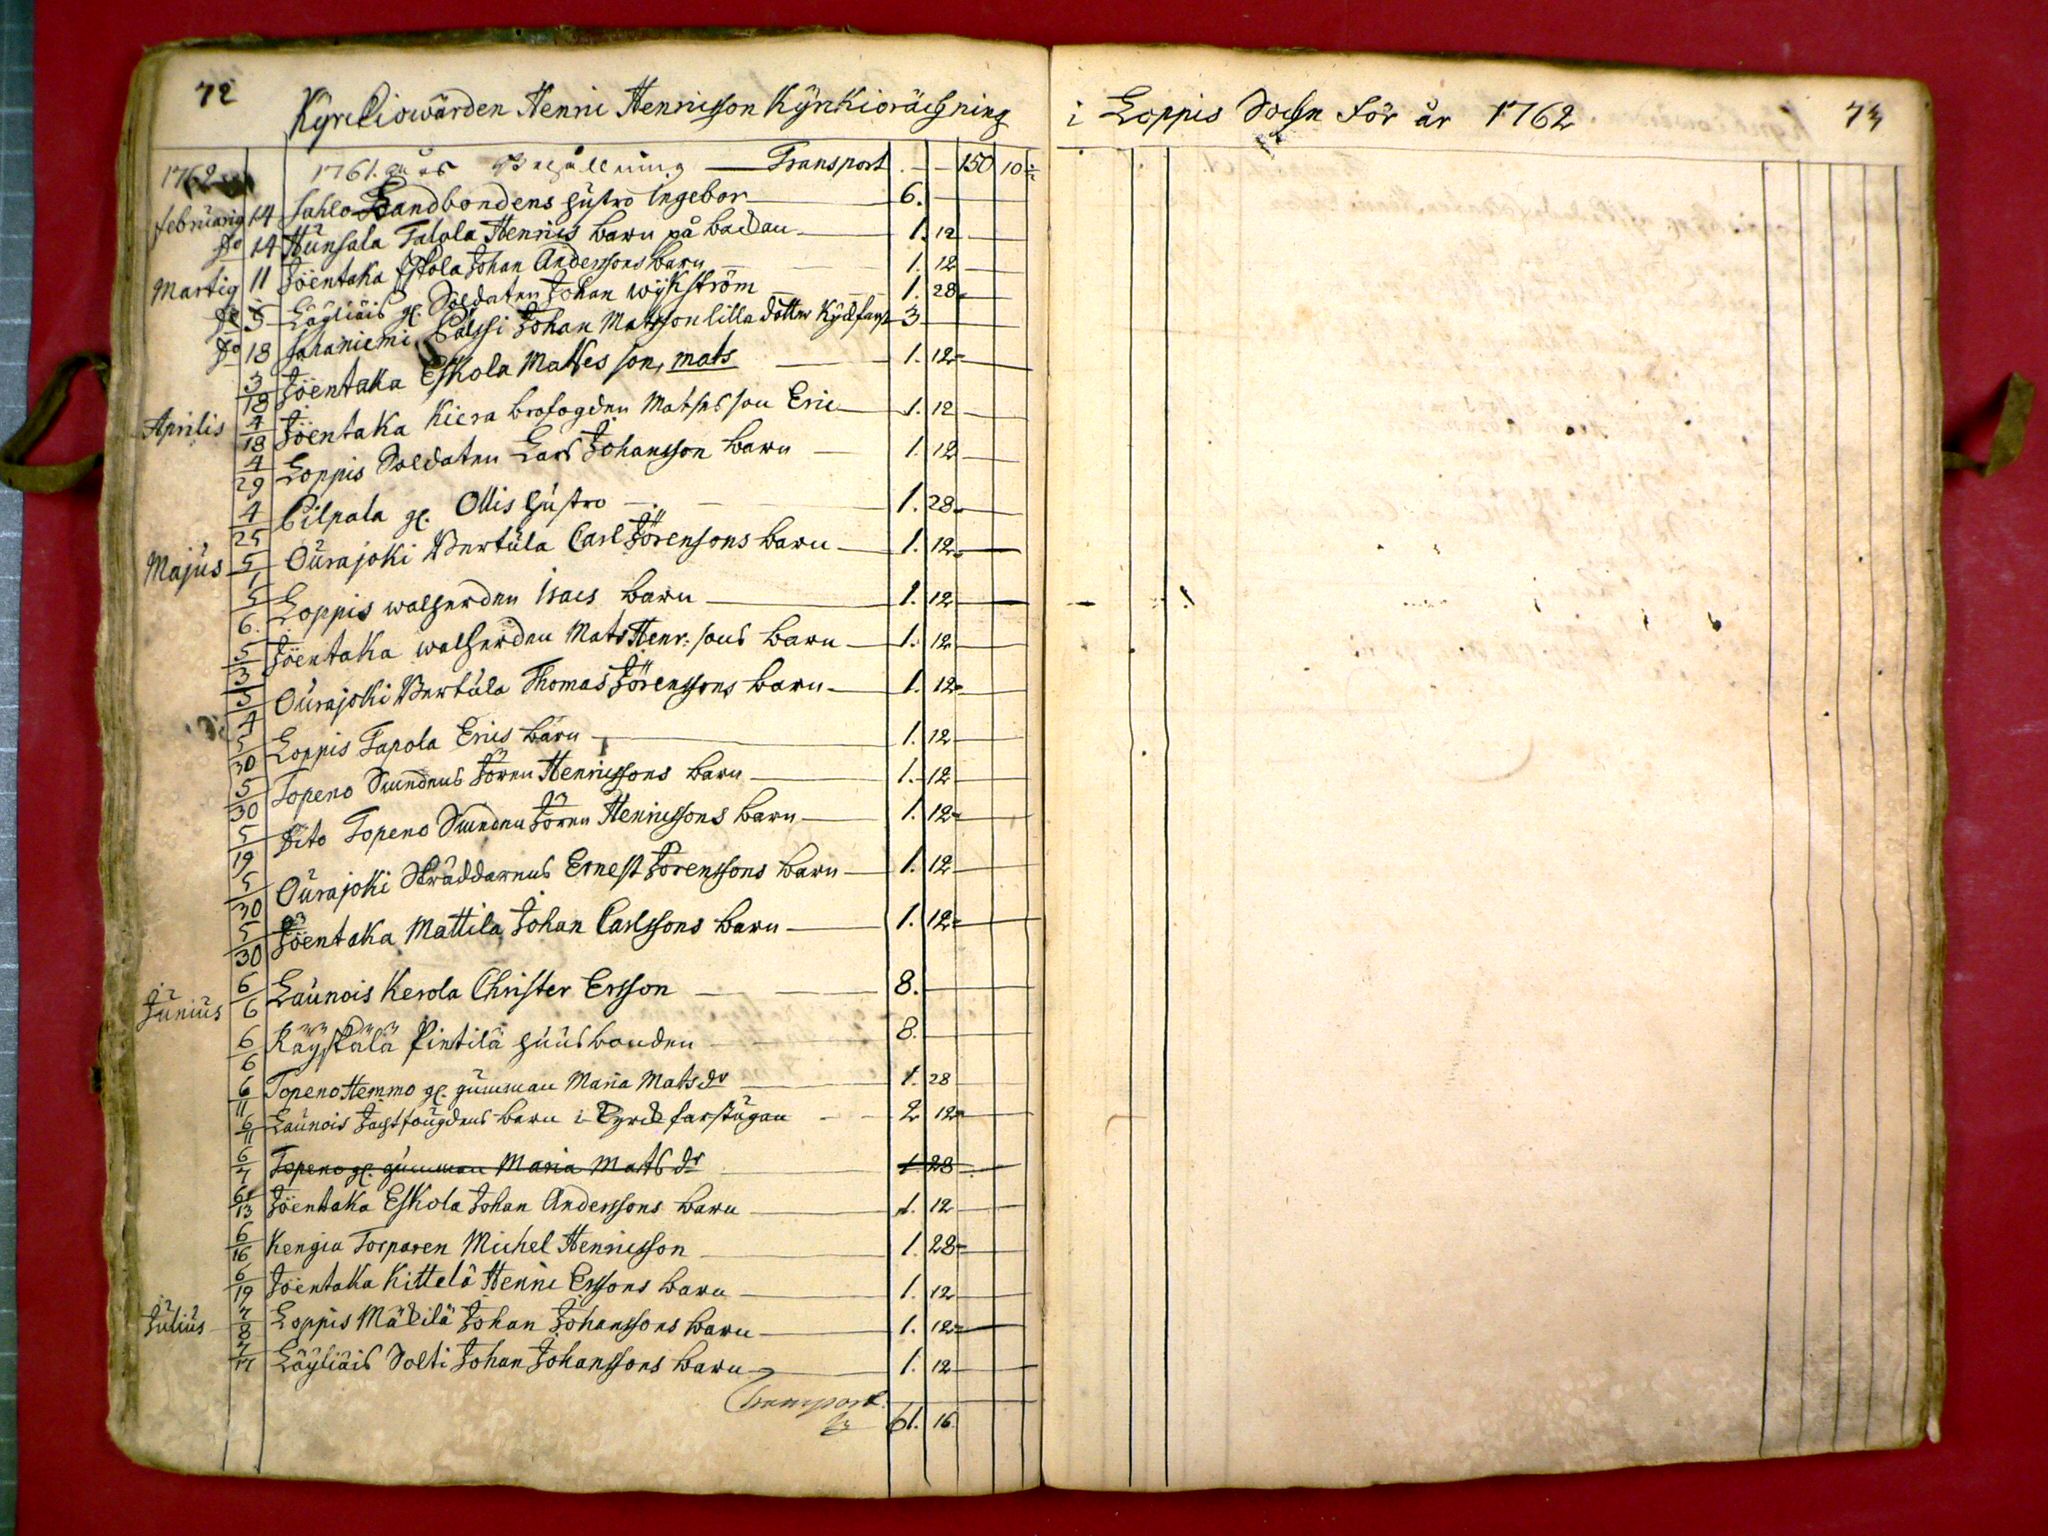 72
Kyrckiowärden Henric Henricsson Kyrkioräckning
i Loppis Sockn för år 1762
73
1762 1761. års Behållning — Transport . — 150 10
februarij 14 Sahlo Landbondens hustro Ingebor 6.
do 14 Hunsala Talola Henrics barn på backan 1. 12
Martij 11 Jöentaka Eskola Johan Anderssons barn 1. 12
do 5 Läyliäis gl. Soldaten Johan Wijkström 1. 28
do 18 Sahaniemi Pässi Johan Matsson lilla dotter 3
3/18 Jöentaka Eskola Mattes son, mats 1. 12
Aprilis 4/18 Jöentaka Kiera brofogden Matses son Eric 1. 12
4/29 Loppis Soldaten Lars Johansson barn 1. 12
4/25 Pilpala gl. Ollis hustro 1. 28
Majus 5/1 Ourajoki Bertula Carl Jörensons barn 1. 12
5/6. Loppis walherden Isacs barn 1. 12
5/3 Jöentaka walherden Mats Henr: sons barn 1. 12
5/4 Ourajoki Bertula Thomas Jörenssons barn 1. 12
5/30 Loppis Tapola Erics barn 1. 12
5/30 Topeno Smedens Jören Henricssons barn 1. 12
5/19 Dito Topeno Smeden Jören Henricssons barn 1. 12
5/30 Ourajoki Skräddarens Ernest Jörenssons barn 1. 12
5/30 Jöentaka Mattila Johan Carlssons barn 1. 12
Junius 6/6 Launois Kerola Christer Ersson 8.
6/6 Räyskälä Pintilä huusbonden 8.
6/11 Topeno Hemmo gl. gumman Maria Matsdr 1. 28
6/11 Launois Jachtfougdens barn i Kyrck farstugan 2 12
6/7 Topeno gl. gumman Maria Matsdr 1 28
6/13 Jöentaka Eskola Johan Anderssons barn 1. 12
6/16 Kengia Torparen Michel Henricsson 1. 28
6/19 Jöentaka Kittelä Henric Erssons barn 1. 12
Julius 7/8 Loppis Mäkilä Johan Johanssons barn 1. 12
7/17 Läyliäis Solti Johan Johanssons barn 1. 12
Transport. 61. 16.